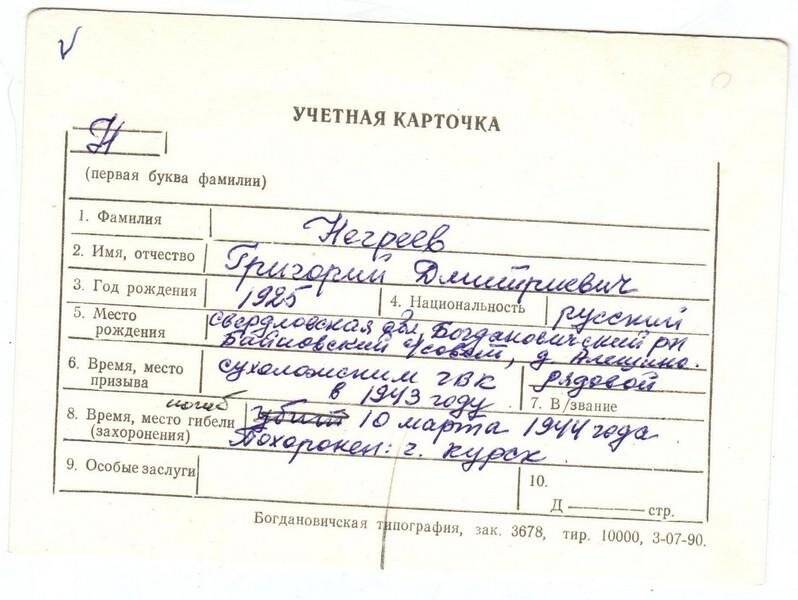 V
УЧЕТНАЯ КАРТОЧКА
Н
(первая буква фамилии)
1. Фамилия Негреев
2. Имя, отчество Григорий Дмитриевич
3. Год рождения 1925 4. Национальность русский
5. Место рождения Свердловская обл. Богдановичский рн
Байновский с/совет, д. Алешино.
6. Время, место призыва Сухоложским ГВК
в 1943 году
рядовой
7. В/звание
8. Время, место гибели (захоронения) погиб убит 10 марта 1944 года
Похоронен: г. Курск
9. Особые заслуги
10.
Д ——— стр.
Богдановичская типография, зак. 3678, тир. 10000, 3-07-90.